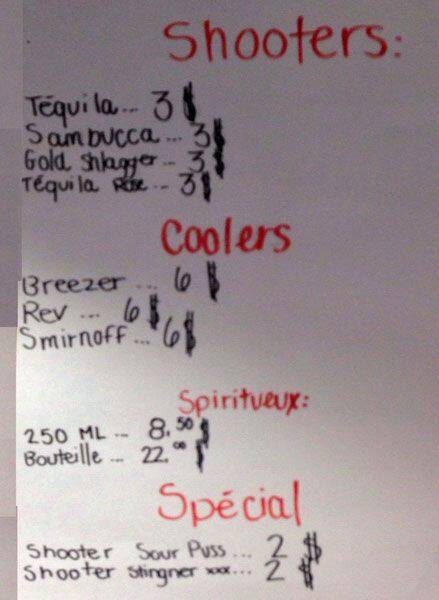 Shooters:
Téquila... 3 $
Sambucca... 3 $
Gold Shlagger... 3 $
Téquila Rose... 3 $
Coolers
Breezer... 6 $
Rev... 6 $
Smirnoff... 6 $
Spiritueux:
250 ML... 8.50 $
Bouteille... 22.00 $
Spécial
Shooter Sour Puss... 2 $
Shooter Stingner xxx... 2 $